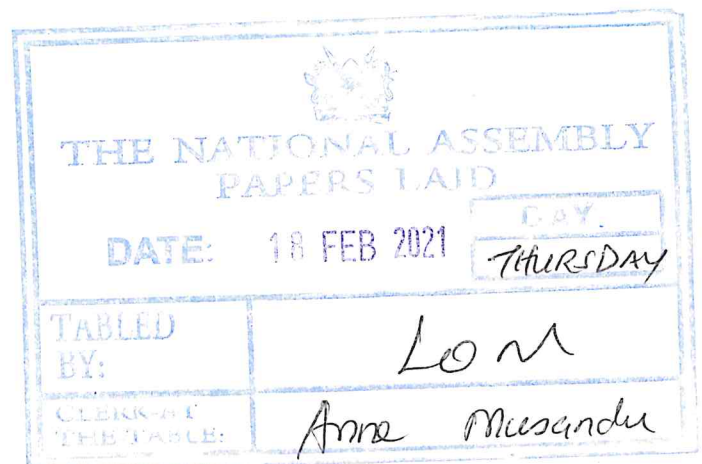 THE NATIONAL ASSEMBLY
PAPERS LAID
DAY.
DATE: 18 FEB 2021 THURSDAY
TABLED
BY: LOM
CLERK-AT
THE TABLE: Anne Musandu